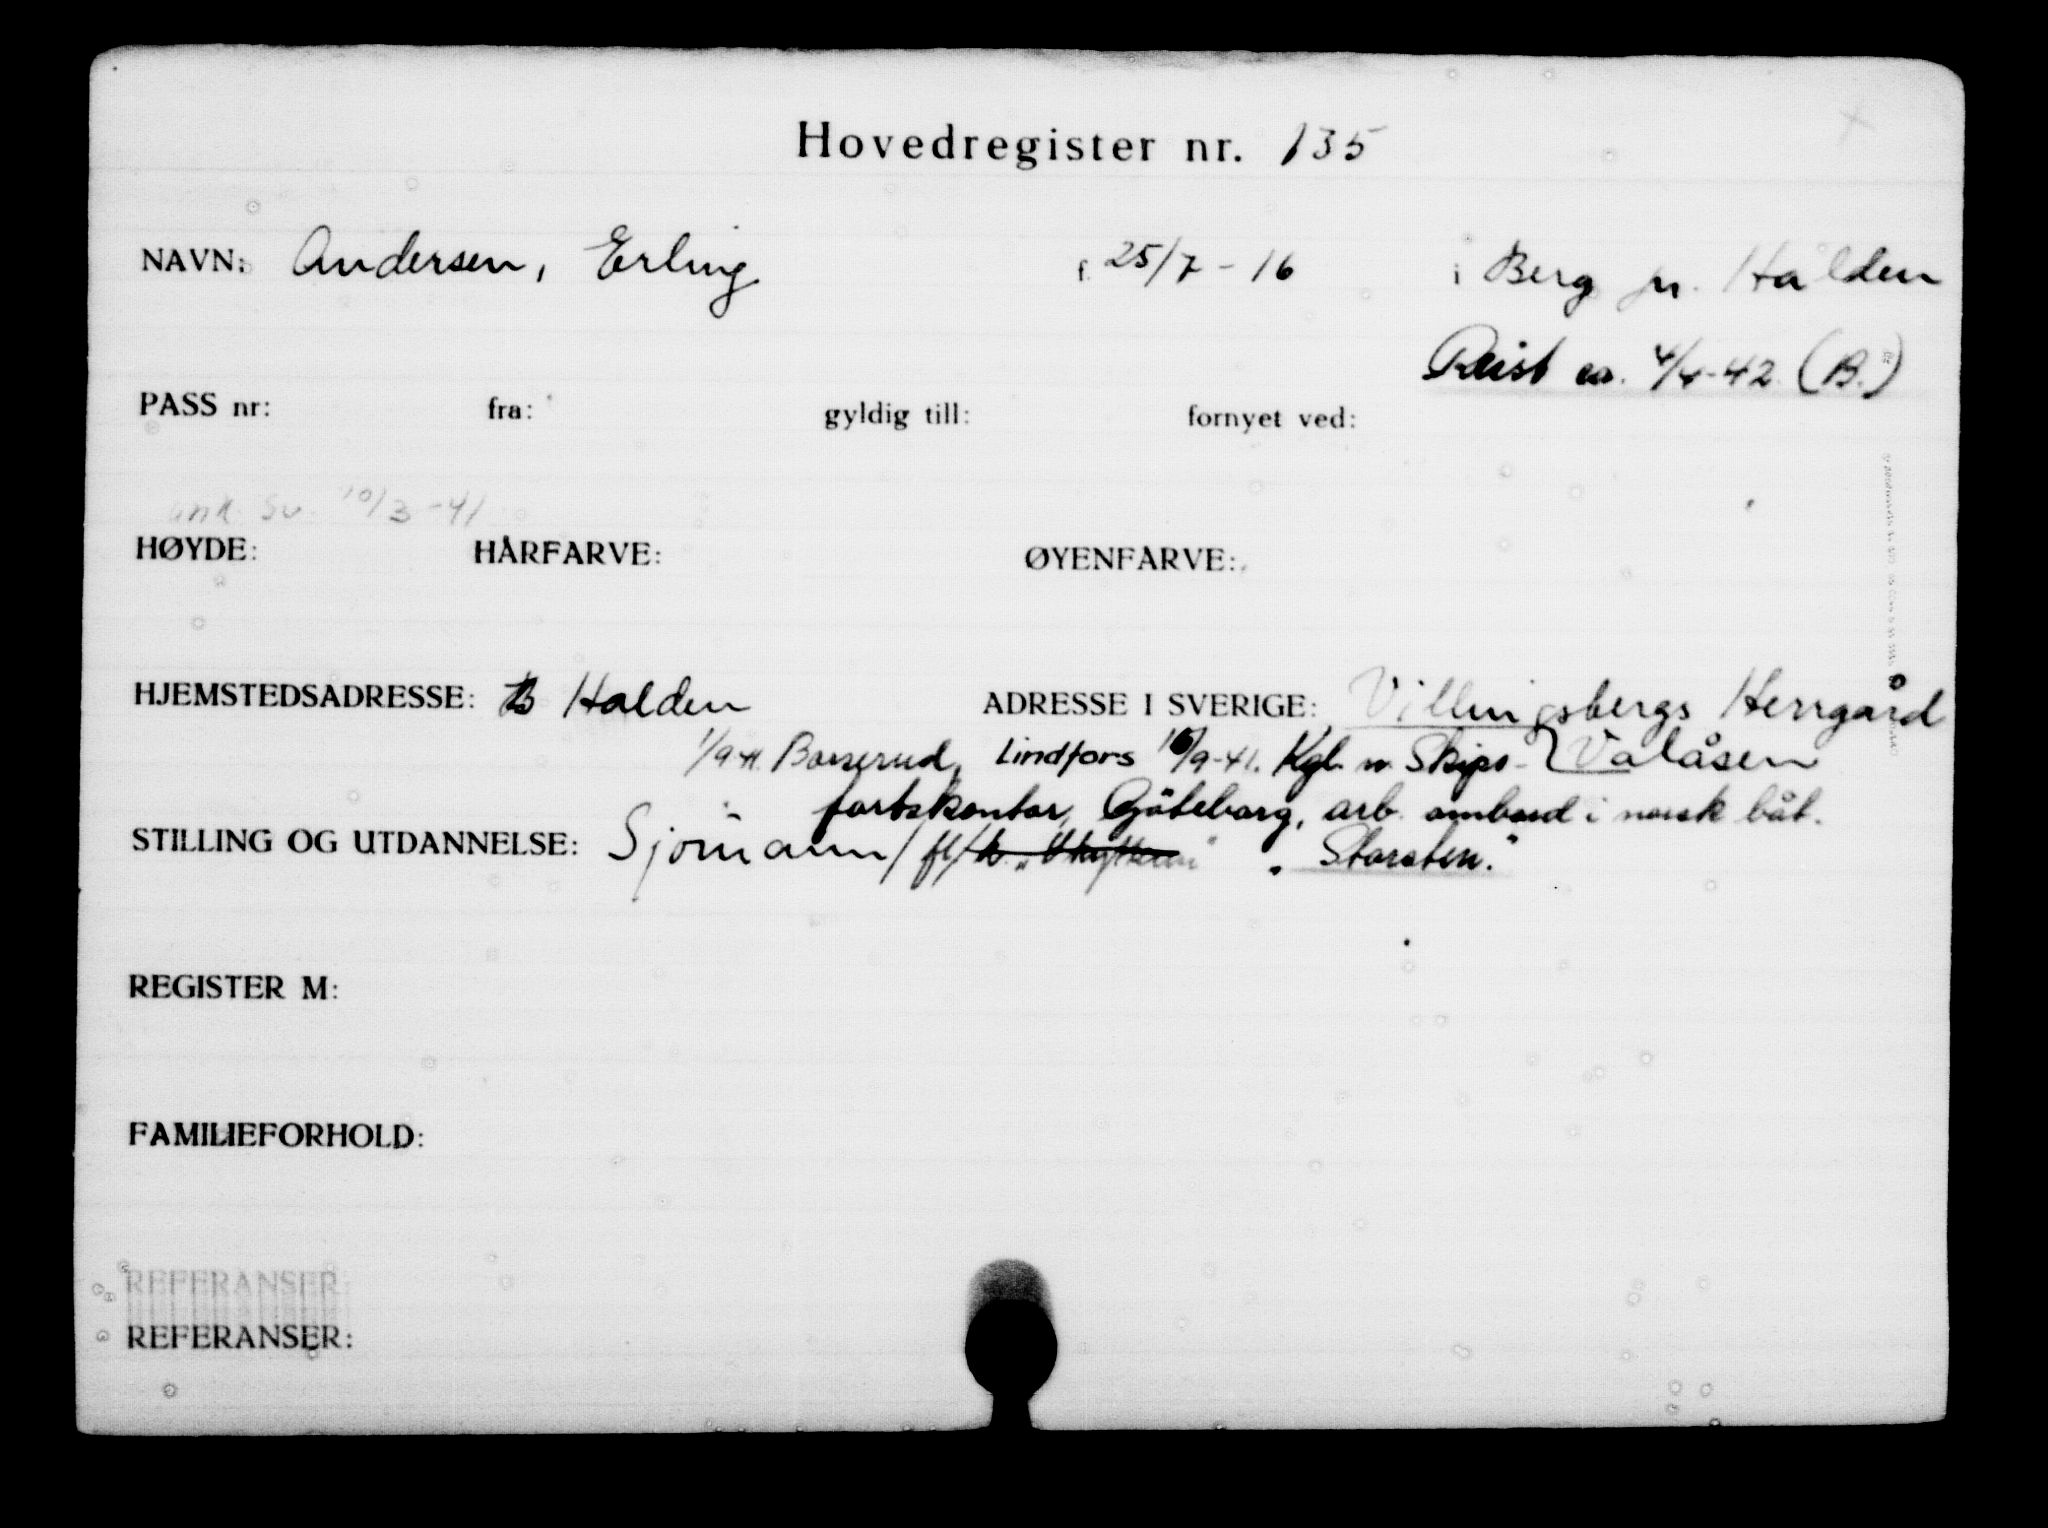 Hovedregister nr. 135
NAVN: Andersen, Erling f. 25/7 - 16 i Berg pr. Halden
Reist ca. 4/4-42 (B.)
PASS nr: fra: gyldig till: fornyet ved:
ank. Sv. 10/3-41
HØYDE: HÅRFARVE: ØYENFARVE:
HJEMSTEDSADRESSE: Halden ADRESSE I SVERIGE: Villingsbergs Herrgård
1/9-41. Borserud, Lindfors 16/9-41. Kgl. n. Skips- Valåsen
fartskontor, Göteborg, arb. ombord i norsk båt.
STILLING OG UTDANNELSE: Sjömann / "Storsten."
REGISTER M:
FAMILIEFORHOLD:
REFERANSER:
REFERANSER: